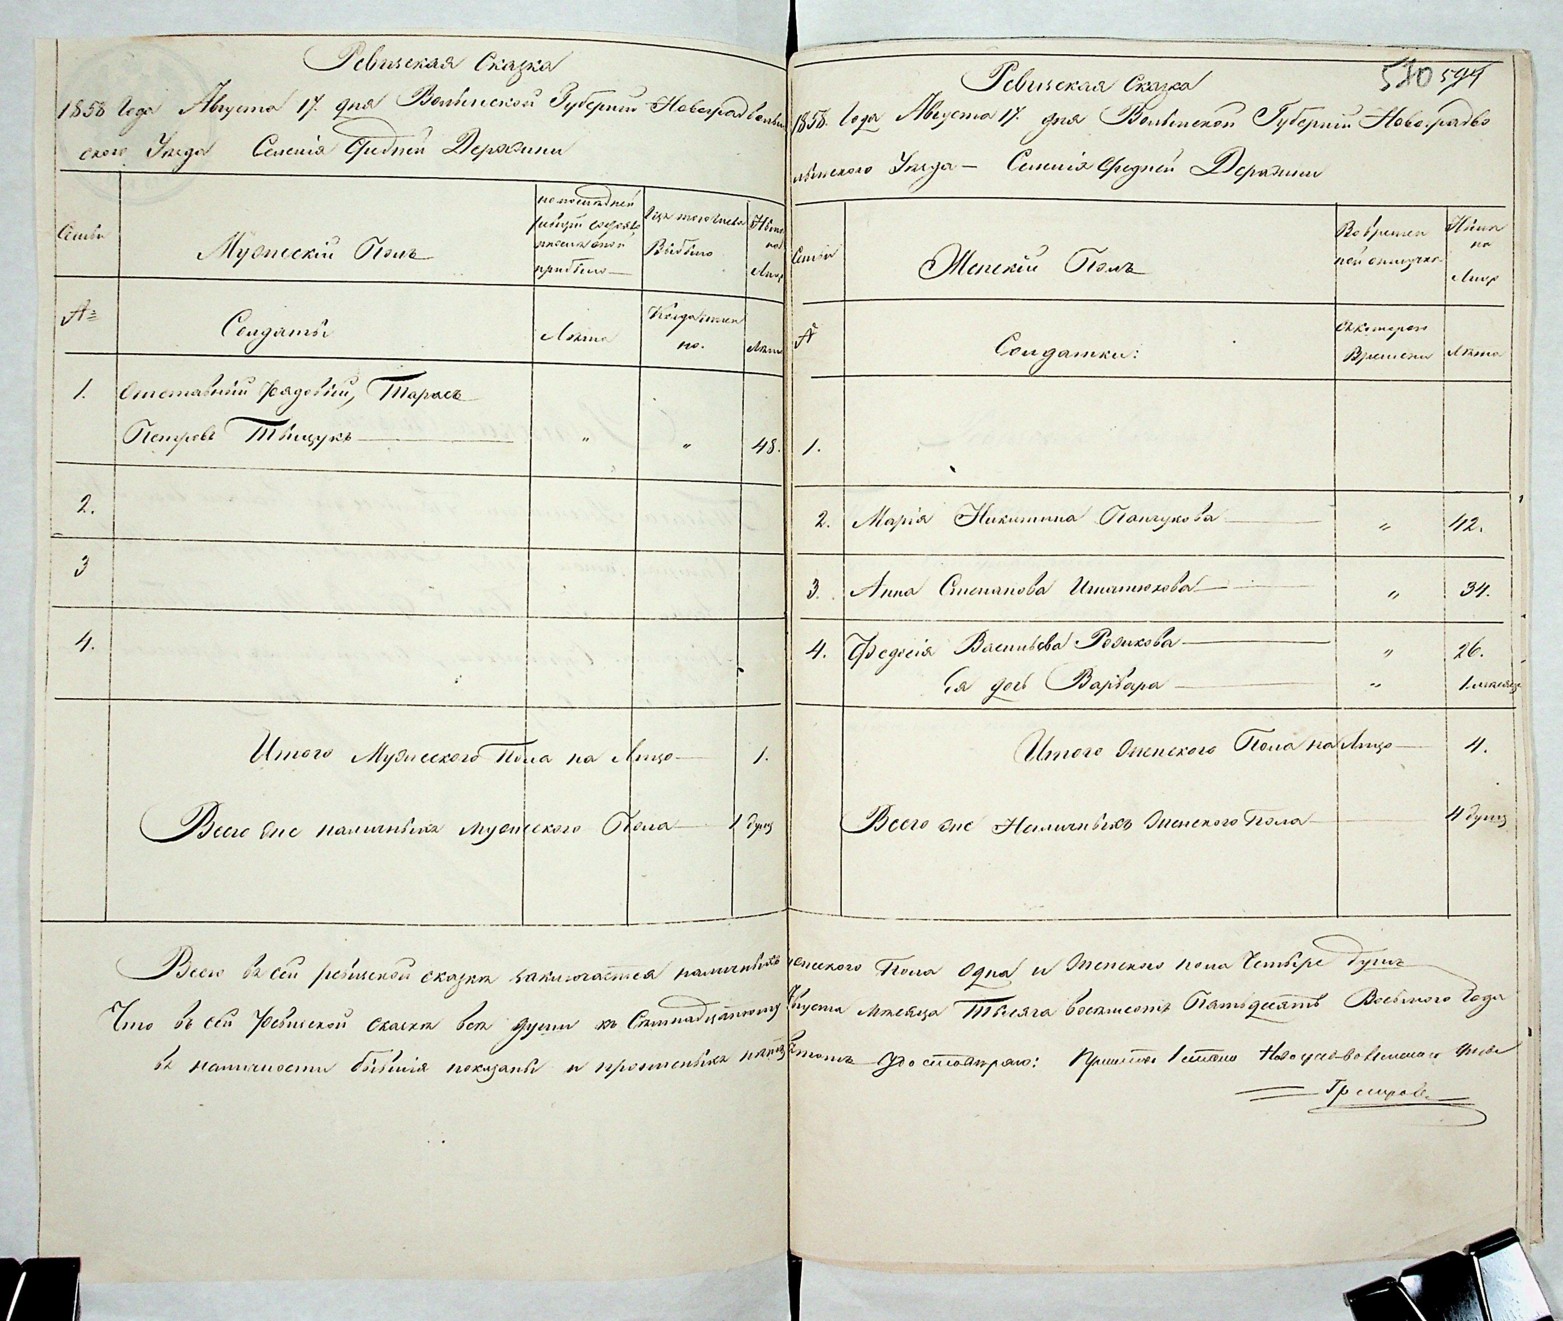 Ревизская Сказка
1858 Года Августа 17. дня Волынской Губерніи Новоградволын
ского Уезда Селенія Средней Деражни
Семьи
Мужескій Полъ
по последней
ревизіи состояло
и после оной
прибыло
Изъ того числа
Выбыло
Ныне
на
Лицо
№
Солдаты
Лета
Когда имен
но.
Лета
1. Отставный Рядовый, Тарасъ
Петровъ Тыщукъ " " 48.
2.
3
4.
Итого Мужеского Пола на Лицо 1.
Всего же наличныхъ мужеского Пола 1 душ
580 594
Ревизская Сказка
1858. Года Августа 17. дня Волынской Губерніи Новоградво
лынского Уезда Селенія Средней Деражни
Семьи
Женскій Полъ
Во времен
ной отлучке
Ныне
на
Лицо
№
Солдатки:
Съ котораго
Времени
Лета
1.
2. Марія Никитина Панчукова " 42.
3. Анна Степанова Игнатюкова " 34.
4. Федосія Васильева Рожкова " 26.
Ея дочь Варвара " 1 месяц
Итого женского Пола на Лицо 4.
Всего же Наличныхъ женского Пола 4 душ
Всего въ сей ревизской сказке заключается наличныхъ мужеского Пола одна и женского пола Четыре душъ
Что въ сей Ревизской сказке все души къ Семнадцатому Августа месяца Тысяча восемсотъ Пятьдесятъ Восьмого Года
въ наличности бывшія показаны и прописныхъ нетъ въ томъ удостоверяю: Приставъ 1 стана